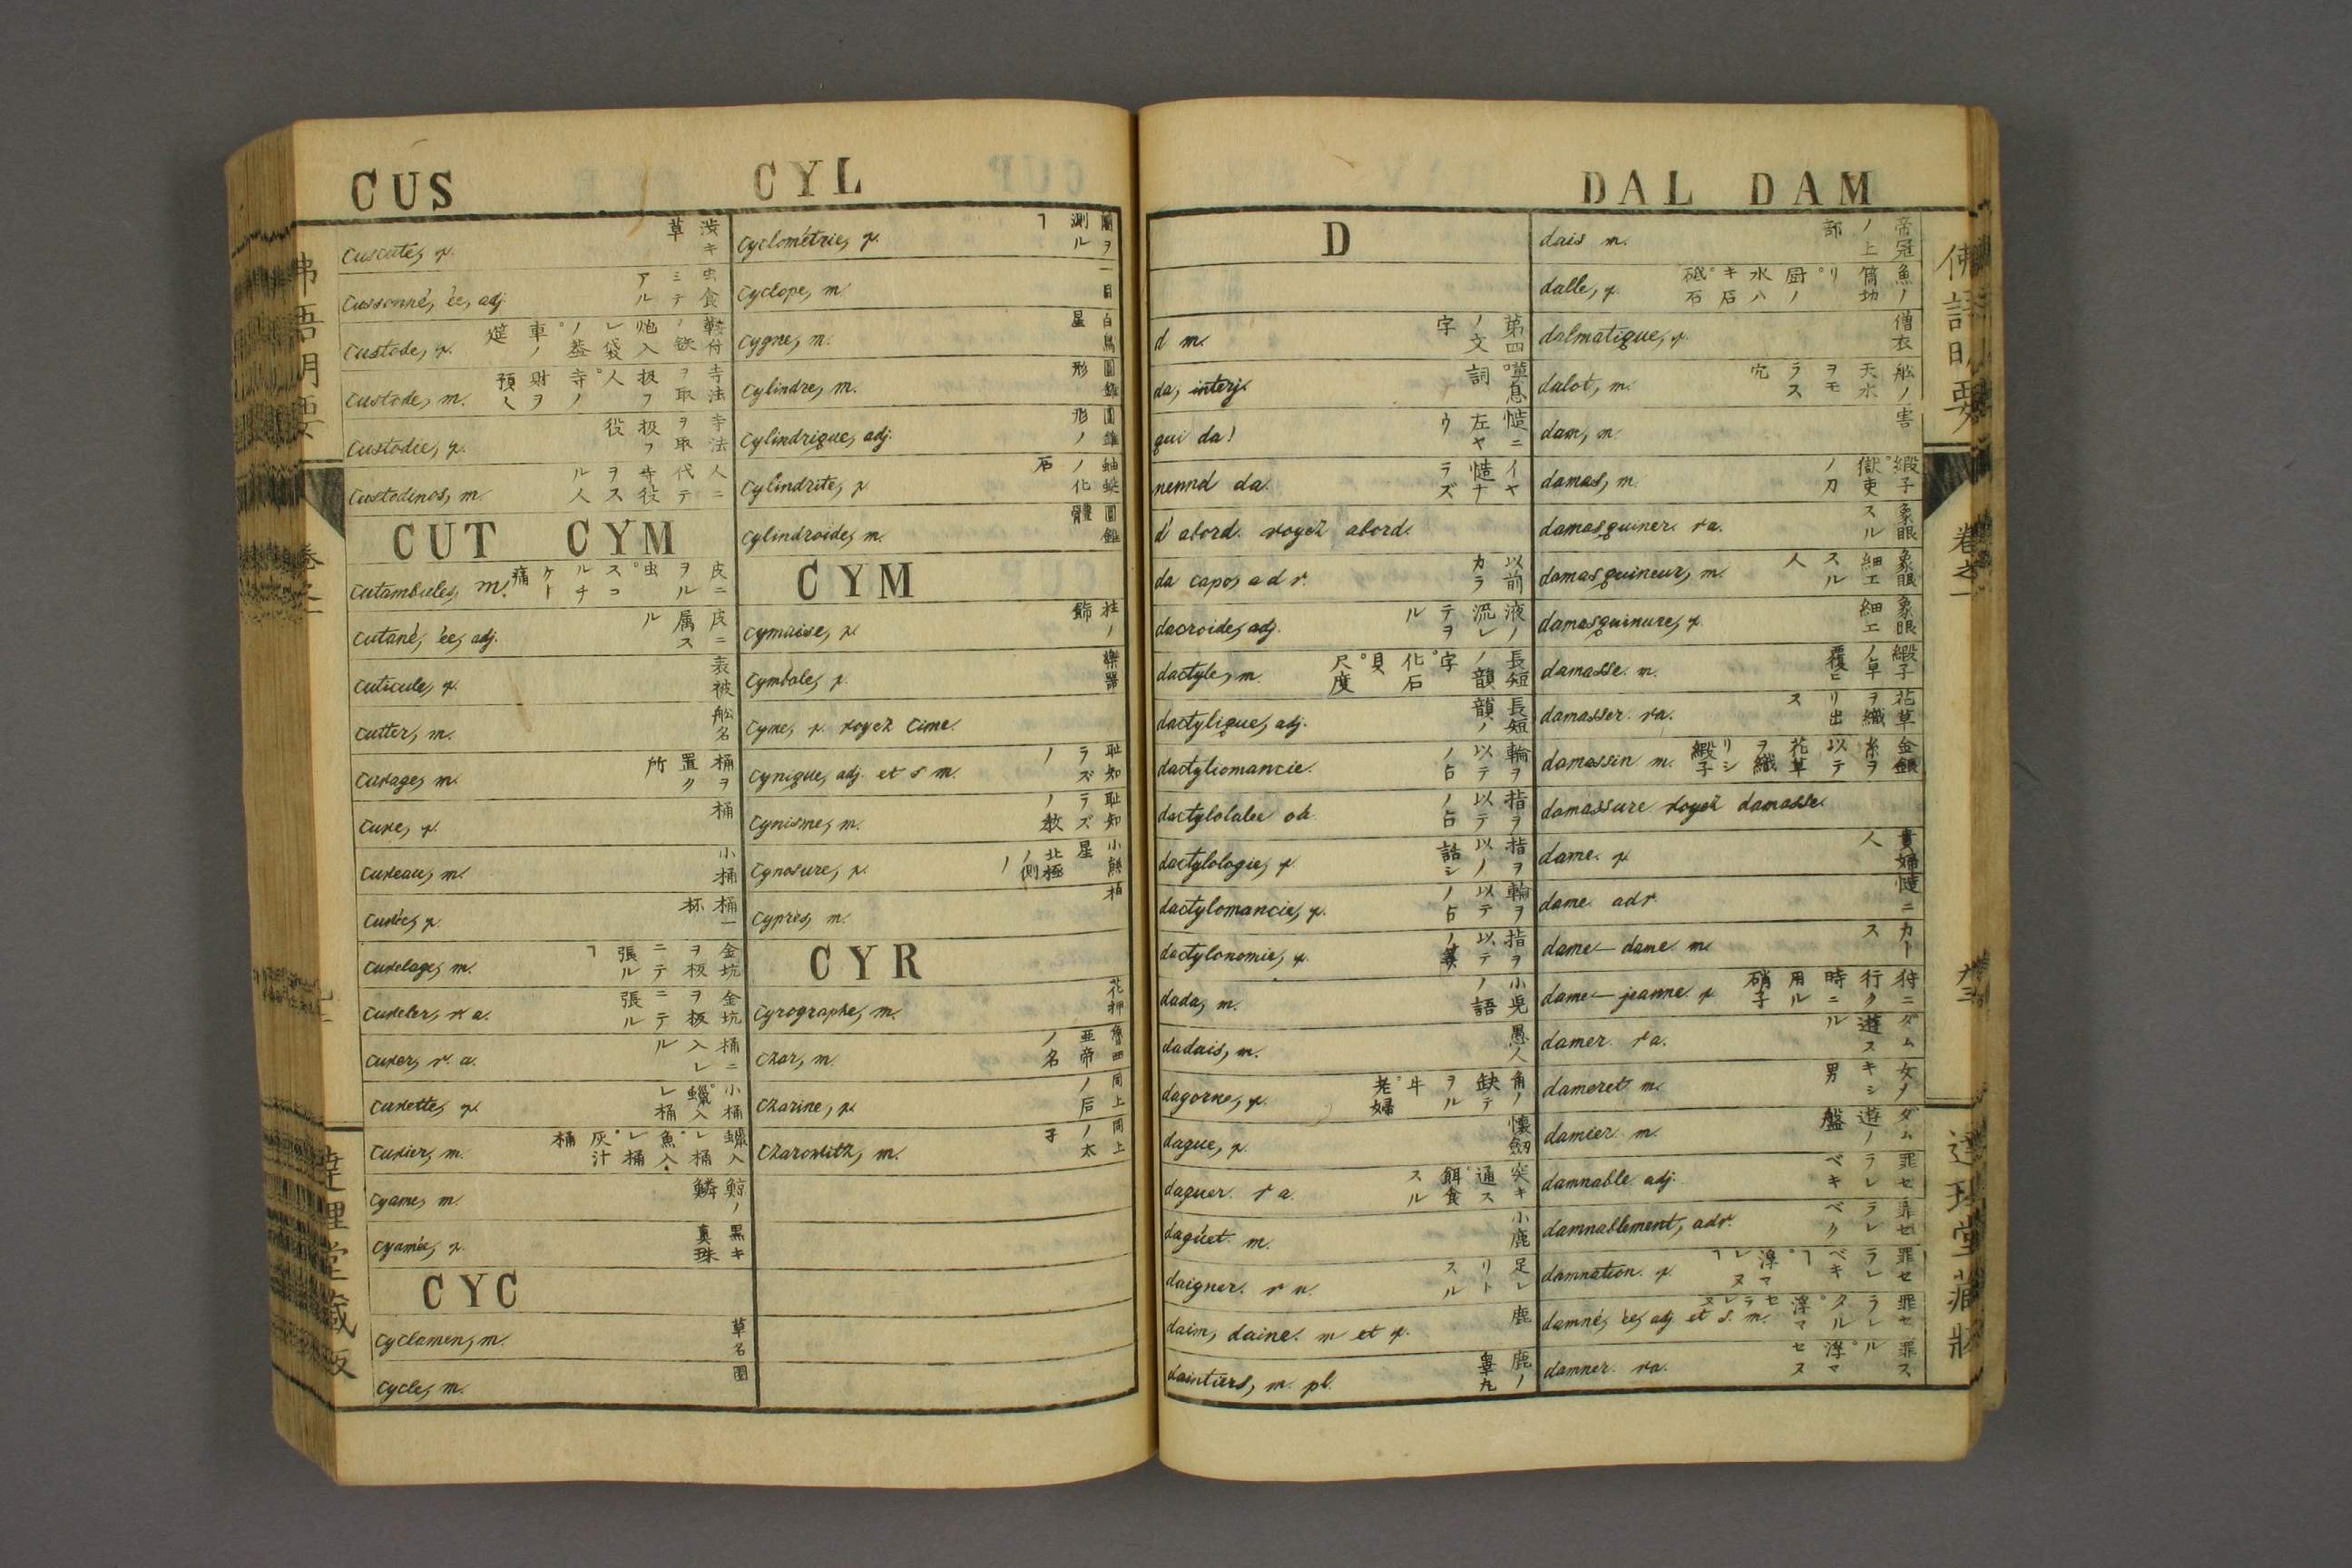 CUS
CYL
cuscute, f. 渋キ草
cussonné, ée, adj. 虫食ミテアル
custode, f.
custode, m. 寺法ヲ取扱フ人。寺ノ財ヲ預ル
custodie, f. 寺法ヲ取扱フ役
custodinos, m. 人ニ代テ寺役ヲスル人
CUT CYM
cutambules, m.
cutané, ée, adj. 皮ニ属スル
cuticule, f. 表被
cutter, m. 舩名
cuvage, m. 桶ヲ置ク所
cuve, f. 桶
cuveau, m. 小桶
cuvée, f. 桶一杯
cuvelage, m. 金坑ヲ板ニテ張ルヿ
cuveler, v a. 金坑ヲ板ニテ張ル
cuver, v. a. 桶ニ入レル
cuvette, f. 小桶。蠟入レ桶
cuvier, m. 蠟入レ桶。魚入レ桶。灰汁桶
cyame, m. 鯨ノ鱗
cyamée, f. 黒キ真珠
CYC
cyclamen, m. 草名
cycle, m. 圏
cyclométrie, f. 圏ヲ測ルヿ
cyclope, m. 一目
cygne, m. 白鳥星
cylindre, m. 圓錐形
cylindrique, adj. 圓錐形ノ
cylindrite, f. 蚰蜒ノ化石
cylindroide, m. 圓錐體
CYM
cymaise, f. 柱ノ飾
cymbale, f. 樂器
cyme, f. voyez cime.
cynique, adj. et s m. 耻知ラズノ
cynisme, m. 耻知ラズノ教
cynosure, f. 小熊星ノ北極側ノ
cyprès, m.
CYR
cyrographe, m. 花押
czar, m. 魯西亜帝ノ名
czarine, f. 同上ノ后
czarowitz, m. 同上ノ太子
DAL DAM
D
d m. 第四ノ文字
da, interj. 嘆息詞
qui da! 慥ニ左ヤウ
nennd da. イヤ慥ナラズ
d'abord. voyez abord.
da capo, adv. 以前カラ
dacroide, adj. 液ノ流レテヲル
dactyle, m. 長短韻ノ字。化石貝。尺度
dactylique, adj. 長短韻ノ
dactyliomancie. 輪ヲ以テノ占
dactylolalie ob. 指ヲ以テノ占
dactylologie, f. 指ヲ以ノ話シ
dactylomancie, f. 輪ヲ以テノ占
dactylonomie, f. 指ヲ以テノ算
dada, m. 小児ノ語
dadais, m. 愚人
dagorne, f. 角ノ缺テヲル牛。老婦
dague, f. 懐劔
daguer. v a. 突キ通ス。餌食スル
daguet. m. 小鹿
daigner. v n. 足レリトスル
daim, daine. m et f. 鹿
daintiers, m. pl. 鹿ノ睾丸
dais m. 帝冠ノ上部
dalle, f.
dalmatique, f. 僧衣
dalot, m. 舩ノ天水ヲモラス穴
dam, m. 害
damas, m. 緞子。獄吏ノ刀
damasquiner. va. 象眼スル
damasquineur, m. 象眼細工スル人
damasquinure, f. 象眼細工
damasse. m. 緞子ノ卓覆ヒ
damasser. va. 花草ヲ織リ出ス
damassin m. 金銀糸ヲ以テ花草ヲ織リシ緞子
damassure voyez damasse.
dame. f 貴婦人
dame adv 慥ニ
dame-dame m. カース
dame-jeanne f 行ク時ニ用ル硝子
damer va. ダム遊スル
dameret m. 女ノキシ男
damier m. ダム遊ノ盤
damnable adj. 罪セラレベキ
damnablement, adv. 罪セラレベク
damnation. f. 罪セラレベキヿ。浮マヌレヿ
damné, ée, adj et s. m. 罪セラレタル。浮マセラレヌ
damner va. 罪スル。浮マセヌ
佛語明要
卷之一
九三
達理堂藏版